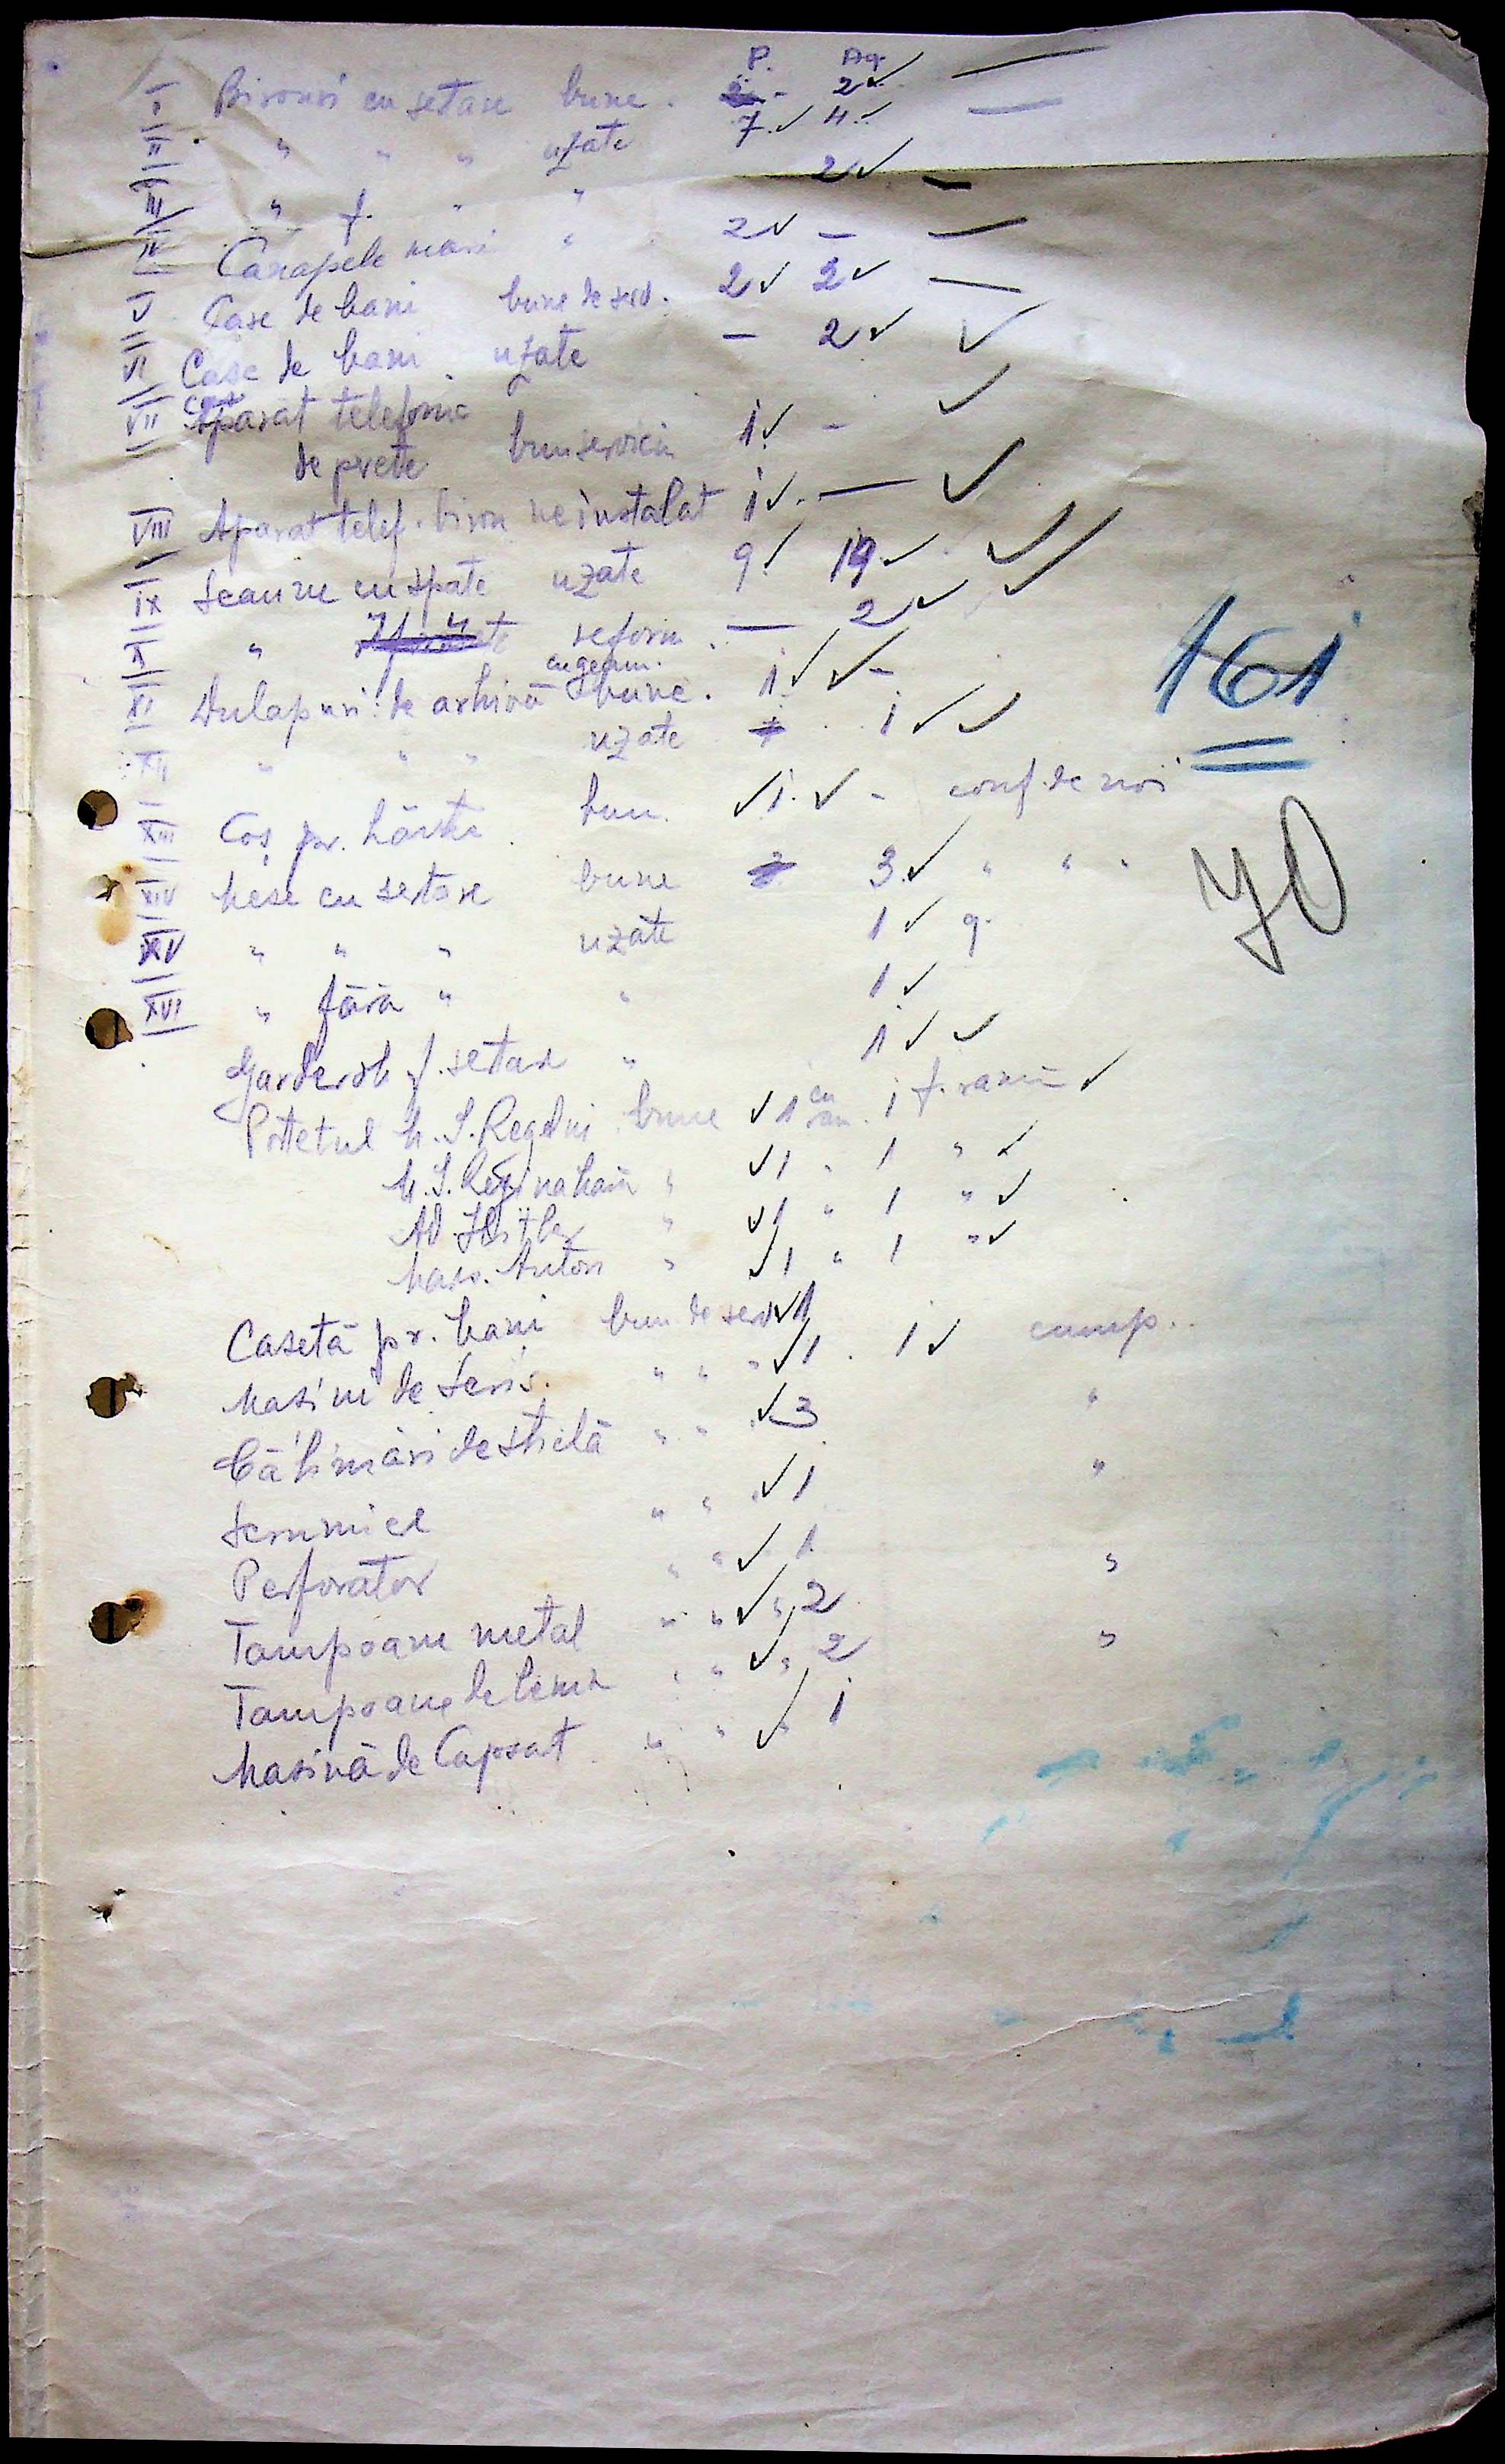 P. Ag.
I Birouri cu setare bune. - 2 ✓ —
II " " " uzate 7. ✓ 4. ✓ —
III " f. " " 2 ✓ —
IV Canapele mari " 2 ✓ — —
V Case de bani bune de serv. 2 ✓ 2 ✓ —
VI Case de bani uzate — 2 ✓ ✓
VII Aparat telefonic ✓
de prete bun servicii 1 ✓ -
VIII Aparat telef. birou neinstalat 1 ✓ — ✓
IX Scaune cu spate uzate 9 ✓ 19 ✓ ✓
X " reform. — 2 ✓ ✓
cu geam.
XI Dulapuri de arhivă bune. 1 ✓ ✓ -
XII " " " uzate 1 ✓ ✓
XIII Coș pr. hârtie bun. ✓ 1. ✓ - conf. de noi
XIV Mese cu setare bune 3 ✓ " " "
XV " " " uzate 1 ✓ 9.
XVI " fără " " 1 ✓
Garderob f. setare " 1 ✓ ✓
Portetul M. S. Regelui bune ✓ 1 cu ram. 1 f. ramă ✓
M. S. Regina Mamă " ✓ 1 " 1 " ✓
Ad. Hitler " ✓ 1 " 1 " ✓
Mareș. Anton " ✓ 1 " 1 " ✓
Casetă pr. bani bun de serv ✓ 1
Masini de Scris. " " " ✓ 1. 1 ✓ cump..
Călimări de sticlă " " ✓ 3 "
Scrumiere " " ✓ 1 "
Perforator " " ✓ 1 "
Tampoane metal " " ✓ " 2 "
Tampoane de lemn " " ✓ " 2
Masină de Capsat " " ✓ " 1
161
70